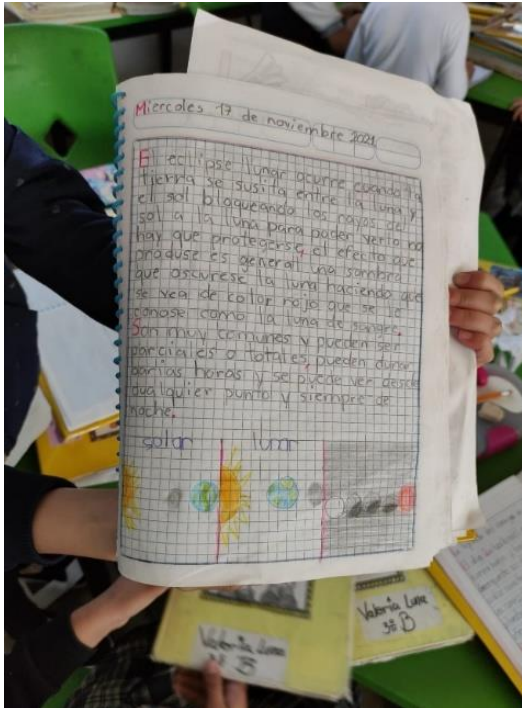 Miercoles 17 de noviembre 2021
El eclipse lunar ocurre cuando la
tierra se susita entre la luna y
el sol bloqueando los rayos del
sol a la luna para poder verlo no
hay que protegerse, el efecto que
produse es general una sombra
que oscurese la luna haciendo que
se vea de color rojo que se le
conose como la luna de sangre.
Son muy comunes y pueden ser
parciales o totales, pueden durar
barias horas y se puede ver desde
cualquier punto y siempre de
noche.
solar lunar
Valeria Luna
3º B
Valeria Luna
3º B